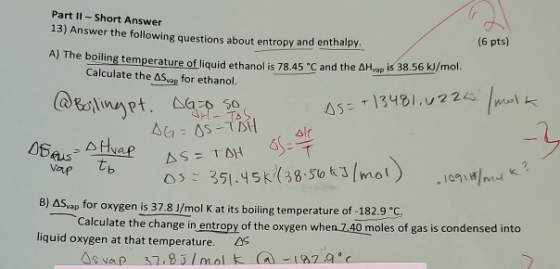 Part II – Short Answer
13) Answer the following questions about entropy and enthalpy.
(6 pts)
A) The boiling temperature of liquid ethanol is 78.45 °C and the ΔHvap is 38.56 kJ/mol.
Calculate the ΔSvap for ethanol.
@Boiling pt. ΔG=0 so
ΔH - TΔS
ΔS= +13481. /mol K
ΔG = ΔS - TΔH
ΔS = ΔH/T
-3
ΔS vap = ΔHvap/tb
ΔS = TΔH
ΔS = 351.45K (38.56 kJ/mol)
B) ΔSvap for oxygen is 37.8 J/mol K at its boiling temperature of -182.9 °C.
Calculate the change in entropy of the oxygen when 7.40 moles of gas is condensed into
liquid oxygen at that temperature. ΔS
ΔS vap 37.8 J/mol K @ -182.9°C